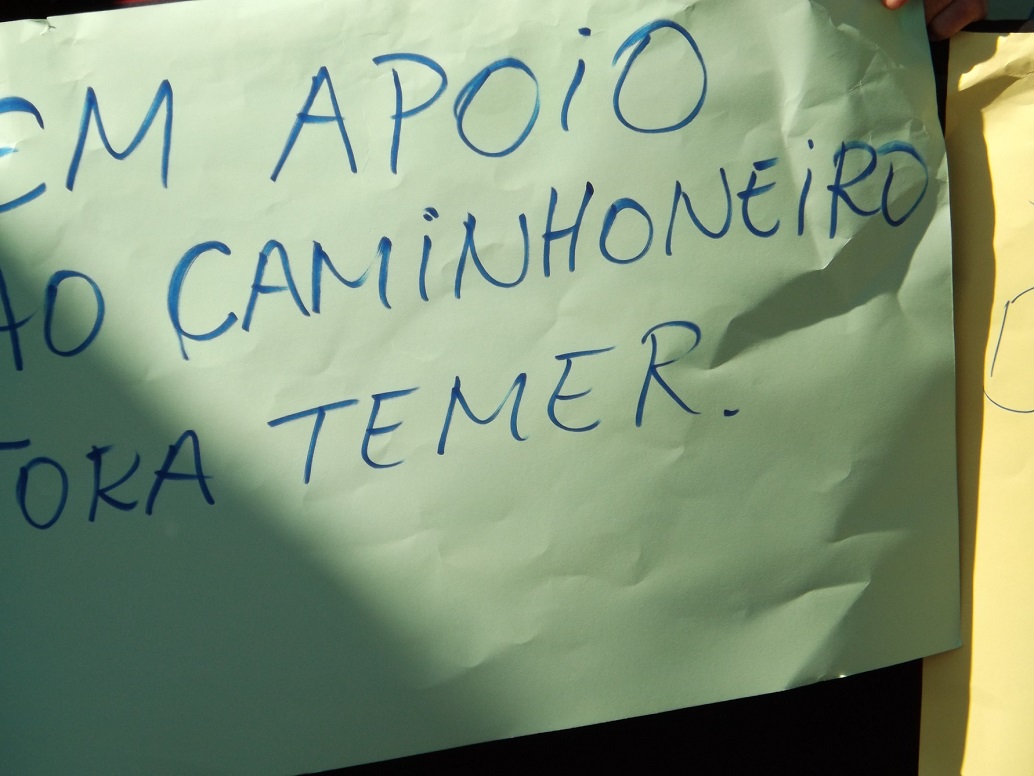 EM APOiO
AO CAMiNHONEiRO
TEMER.